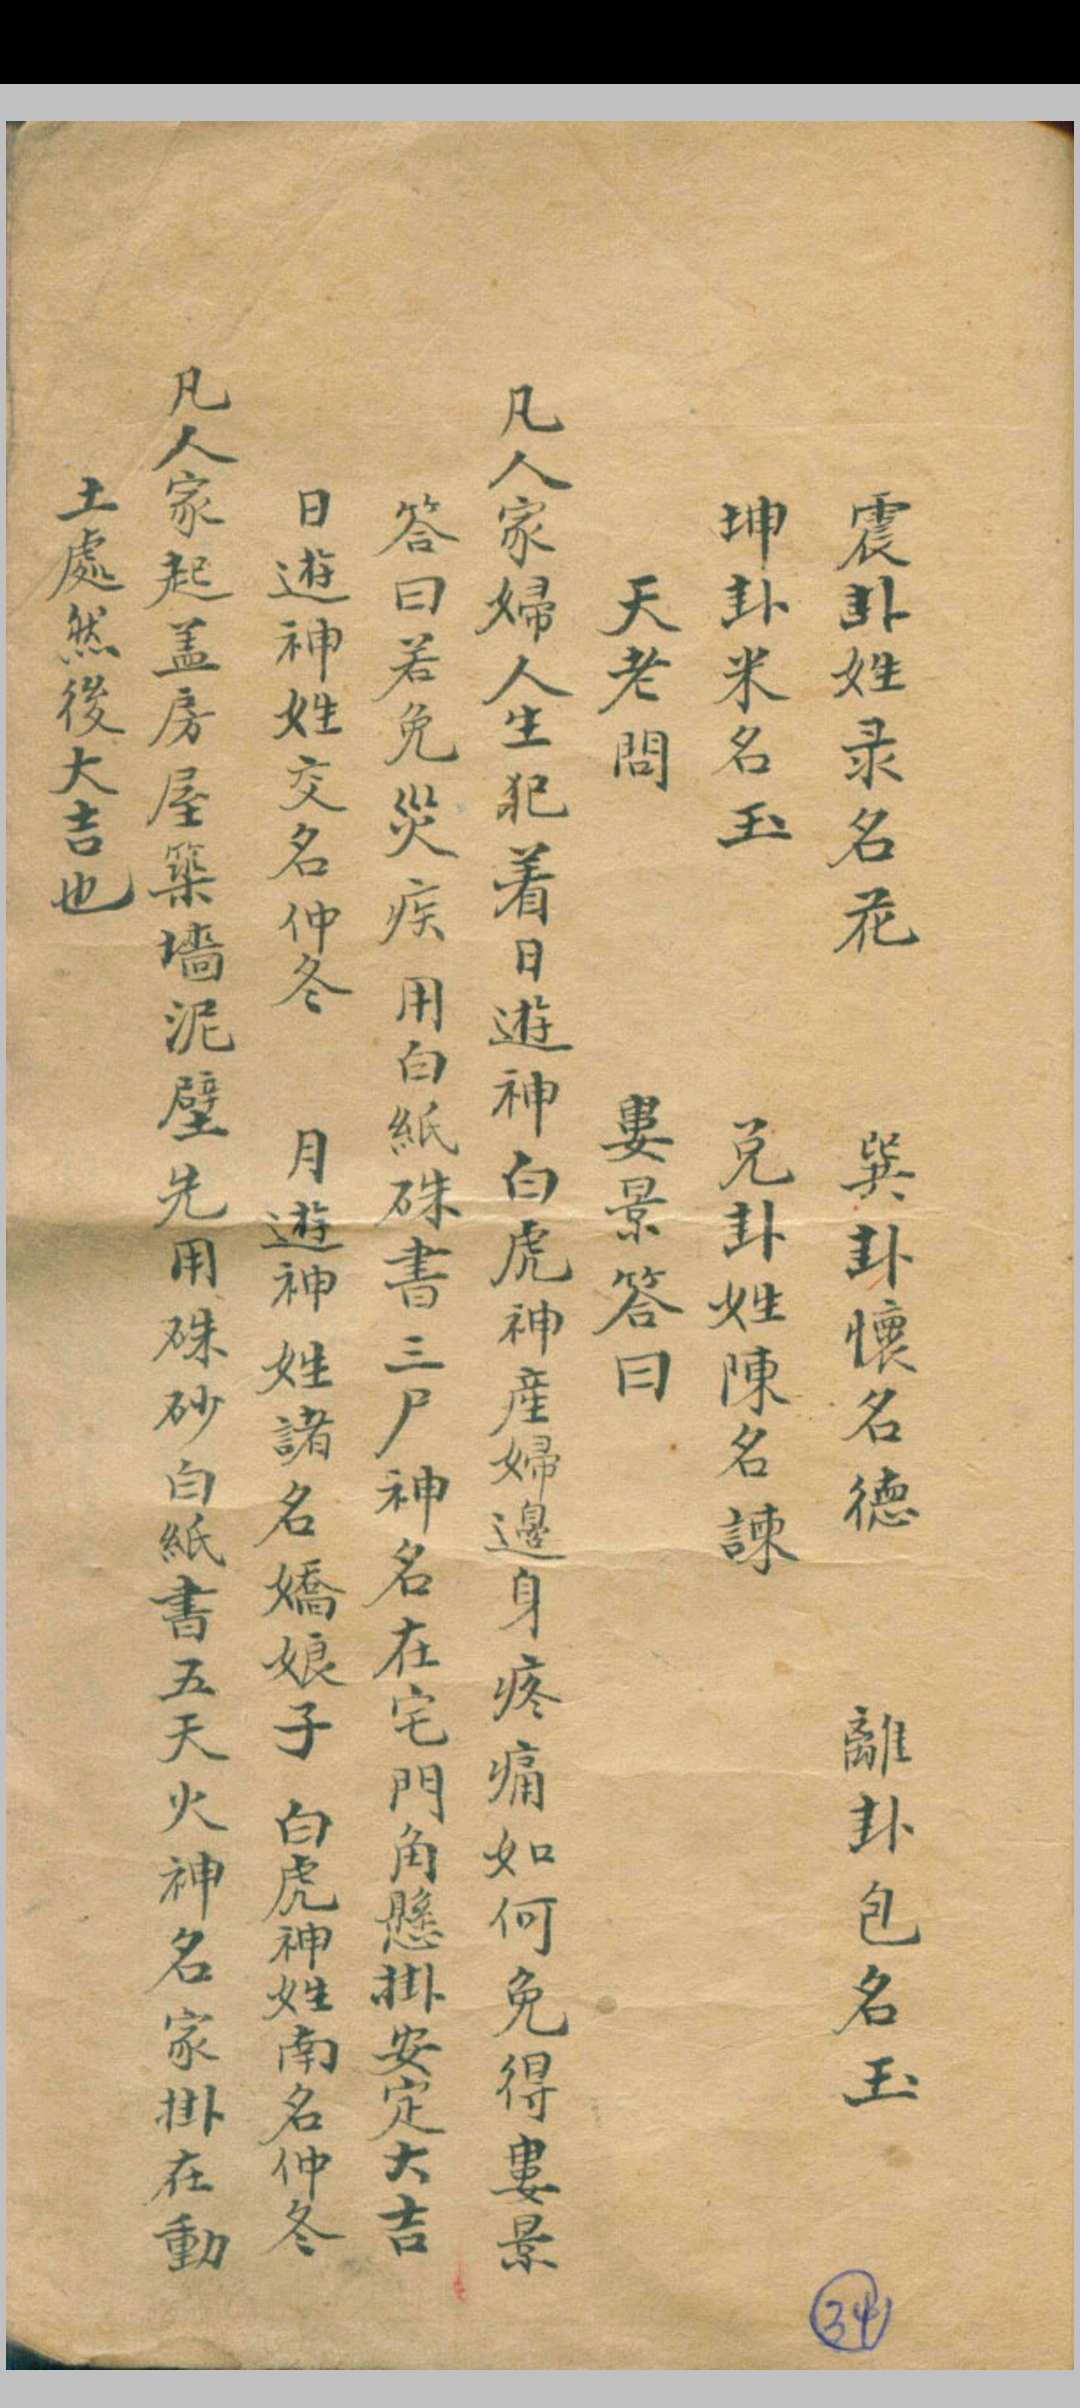 震卦姓录名花　巽卦懷名德　離卦包名玉
坤卦米名玉　兑卦姓陳名諫
天老問　婁景答曰
凡人家婦人生犯着日遊神白虎神産婦邊身疼痛如何免得婁景
答曰若免災疾用白紙硃書三尸神名在宅門角懸掛安定大吉
日遊神姓交名仲冬　月遊神姓諸名嬌娘子　白虎神姓南名仲冬
凡人家起盖房屋築墻泥壁先用硃砂白紙書五天火神名家掛在動
土處然後大吉也
34